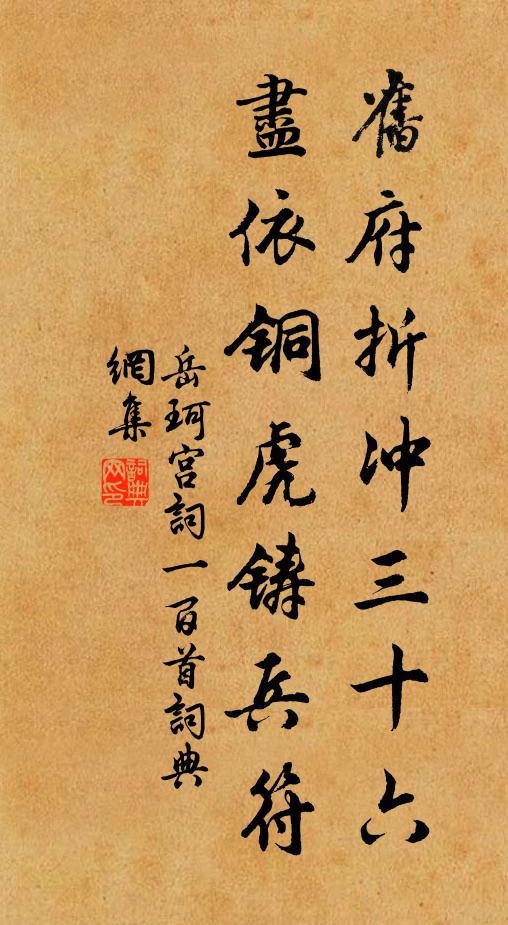 舊府折冲三十六
盡依銅虎鑄兵符
岳珂宮詞一百首詞典
網集
詞典
网印